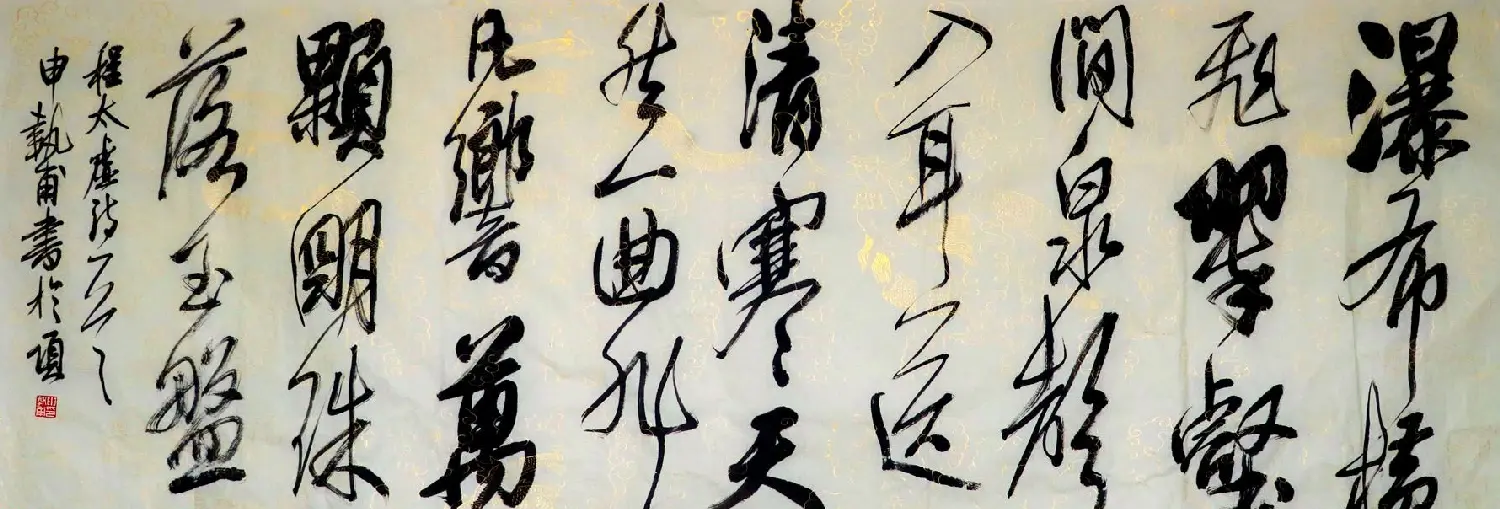 瀑布橫
飛翠壑
間泉聲
入耳送
清寒天
然一曲非
凡響萬
顆明珠
落玉盤
程太虛詩一首
申執甫書於項